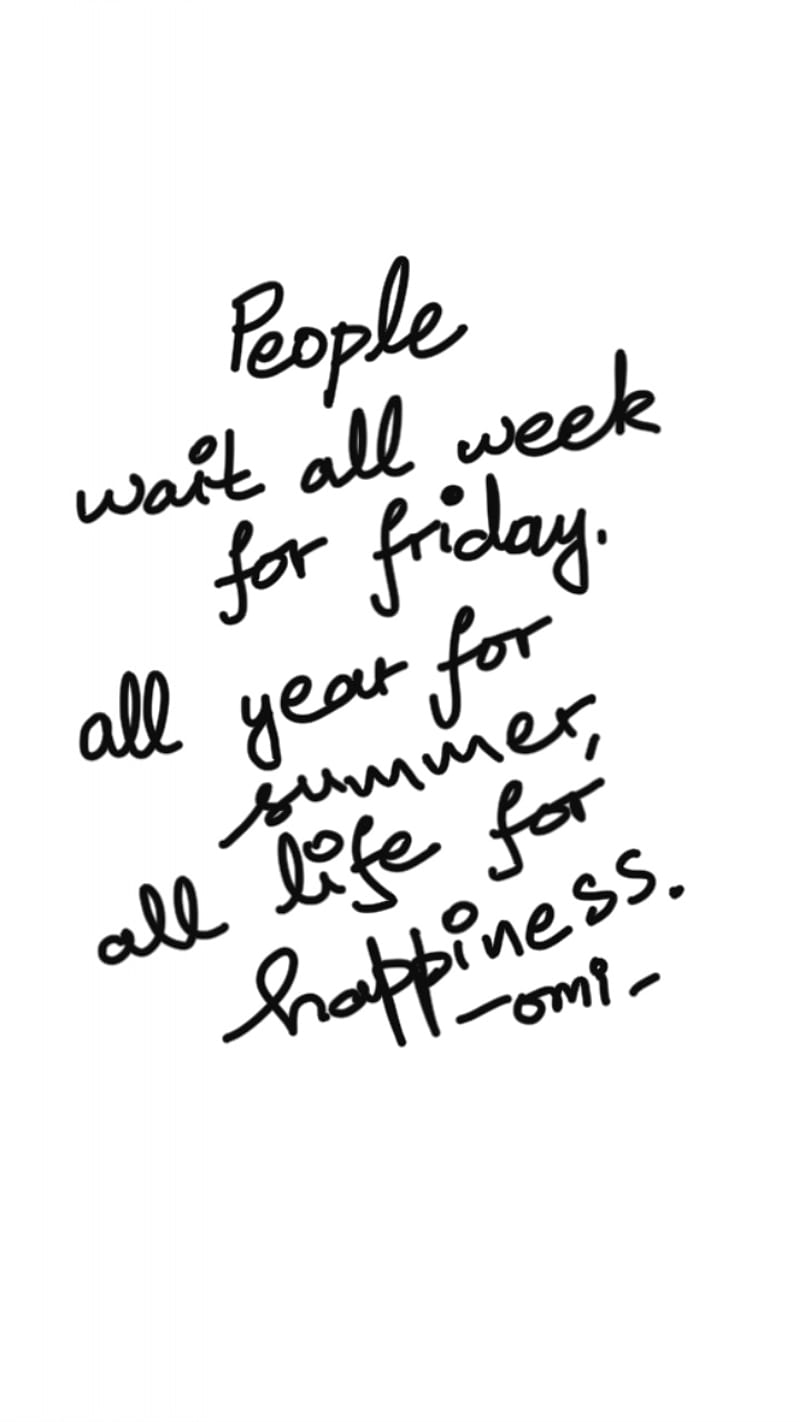 People
wait all week
for friday.
all year for
summer,
all life for
happiness.
-omi-